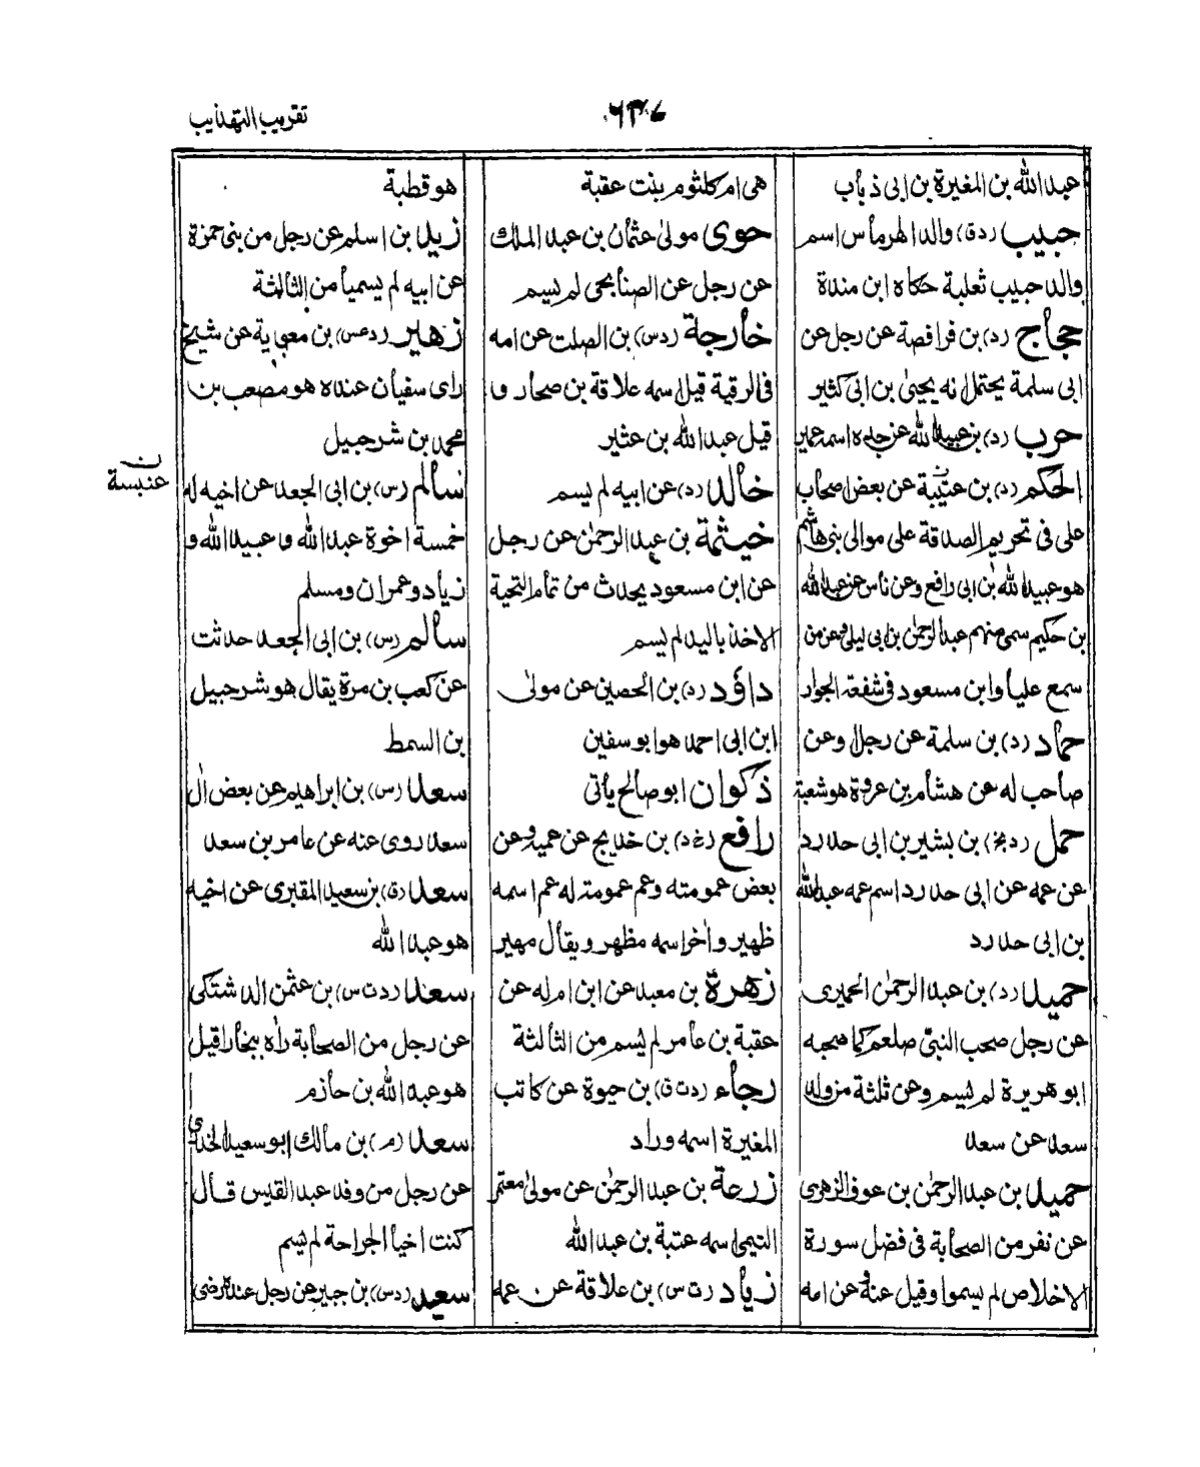 تقريب التهذيب
عبد الله بن المغيرة بن ابى ذباب
حبيب (دق) والد الهرماس اسم
والد حبيب ثعلبة حكاه ابن مندة
حجاج (د) بن فرافصة عن رجل عن
ابى سلمة يحتمل انه يحيىٰ بن ابى كثير
حرب (د) بن عبيد الله عن جده اسمه عمير
الحكم (د) بن عتيبة عن بعض اصحاب
على فى تحريم الصدقة على موالى بنى هاشم
هو عبيد الله بن ابى رافع وعن ناس عن عبد الله
بن حكيم سمى منهم عبد الرحمٰن بن ابى ليلى وعن من
سمع عليا وابن مسعود فى شفعة الجوار
حماد (د) بن سلمة عن رجل وعن
صاحب له عن هشام بن عروة هو شعبة
حمل (دبخ) بن بشير بن ابى حدرد
عن عمه عن ابى حدرد اسم عمه عبد الله
بن ابى حدرد
حميد (د) بن عبد الرحمٰن الحميرى
عن رجل صحب النبى صلعم كما صحبه
ابو هريرة لم يسم وعن ثلثة من ولد
سعد عن سعد
حميد بن عبد الرحمٰن بن عوف الزهرى
عن نفر من الصحابة فى فضل سورة
الاخلاص لم يسموا وقيل عنه عن امه
هى ام كلثوم بنت عقبة
حوى مولىٰ عثمان بن عبد الملك
عن رجل عن الصنابحى لم يسم
خارجة (دس) بن الصلت عن امه
فى الرقية قيل اسمه علاقة بن صحار و
قيل عبد الله بن عثير
خالد (د) عن ابيه لم يسم
خيثمة بن عبد الرحمٰن عن رجل
عن ابن مسعود يحدث من تمام التحية
الاخذ باليد لم يسم
داؤد (د) بن الحصين عن مولىٰ
ابن ابى احمد هو ابو سفين
ذكوان ابو صالح يأتى
رافع (د) بن خديج عن عميه وعن
بعض عمومته وعم عمومته له عم اسمه
ظهير واٰخر اسمه مظهر ويقال مهير
زهرة بن معبد عن ابن ام له عن
عقبة بن عامر لم يسم من الثالثة
رجاء (دت ق) بن حيوة عن كاتب
المغيرة اسمه وراد
زرعة بن عبد الرحمٰن عن مولىٰ معتمر
التيمى اسمه عتبة بن عبد الله
زياد (ت س) بن علاقة عن عمه
هو قطبة
زيد بن اسلم عن رجل من بنى حمزة
عن ابيه لم يسميا من الثالثة
زهير (دعس) بن معوية عن شيخ
راى سفيان عنده هو مصعب بن
محمد بن شرحبيل
سالم (س) بن ابى الجعد عن اخيه له
خمسة اخوة عبد الله وعبيد الله و
زياد وعمران ومسلم
سالم (س) بن ابى الجعد حدثت
عن كعب بن مرة يقال هو شرحبيل
بن السمط
سعد (س) بن ابراهيم عن بعض اٰل
سعد روى عنه عن عامر بن سعد
سعد (ق) بن سعيد المقبرى عن اخيه
هو عبد الله
سعد (دت س) بن عثمن الدشتكى
عن رجل من الصحابة راٰه ببخارا قيل
هو عبد الله بن حازم
سعد (م) بن مالك ابو سعيد الخدرى
عن رجل من وفد عبد القيس قال
كنت اخبأ الجراحة لم يسم
سعيد (دس) بن جبير عن رجل عنده رضى
ن
عنبسة